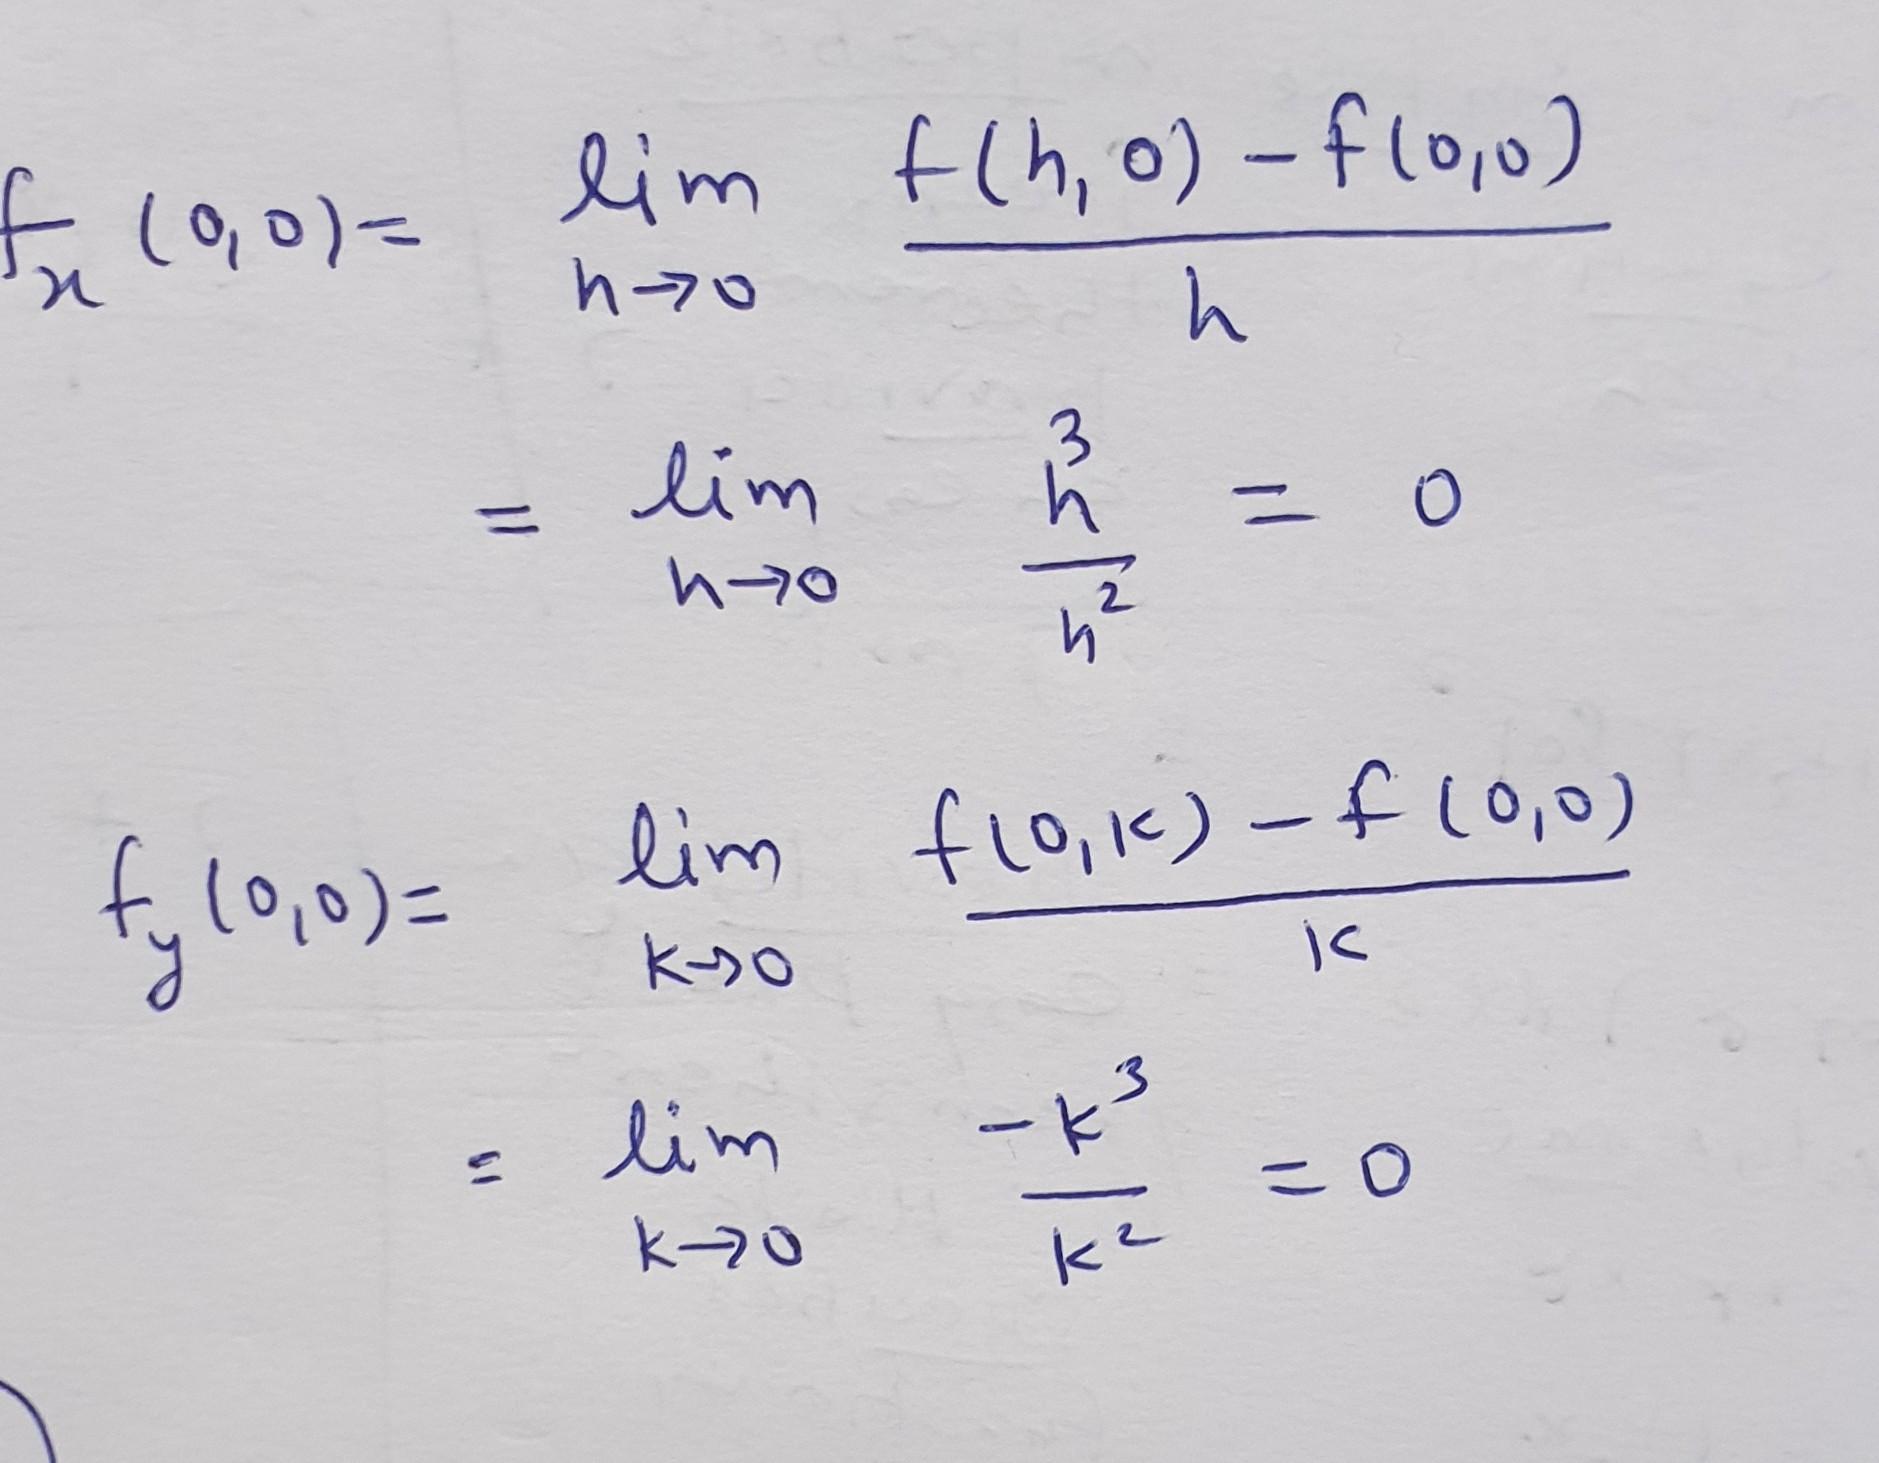 f_x (0,0) = lim_{h→0} (f(h,0) - f(0,0)) / h
= lim_{h→0} h^3 / h^2 = 0
f_y (0,0) = lim_{k→0} (f(0,k) - f(0,0)) / k
= lim_{k→0} -k^3 / k^2 = 0